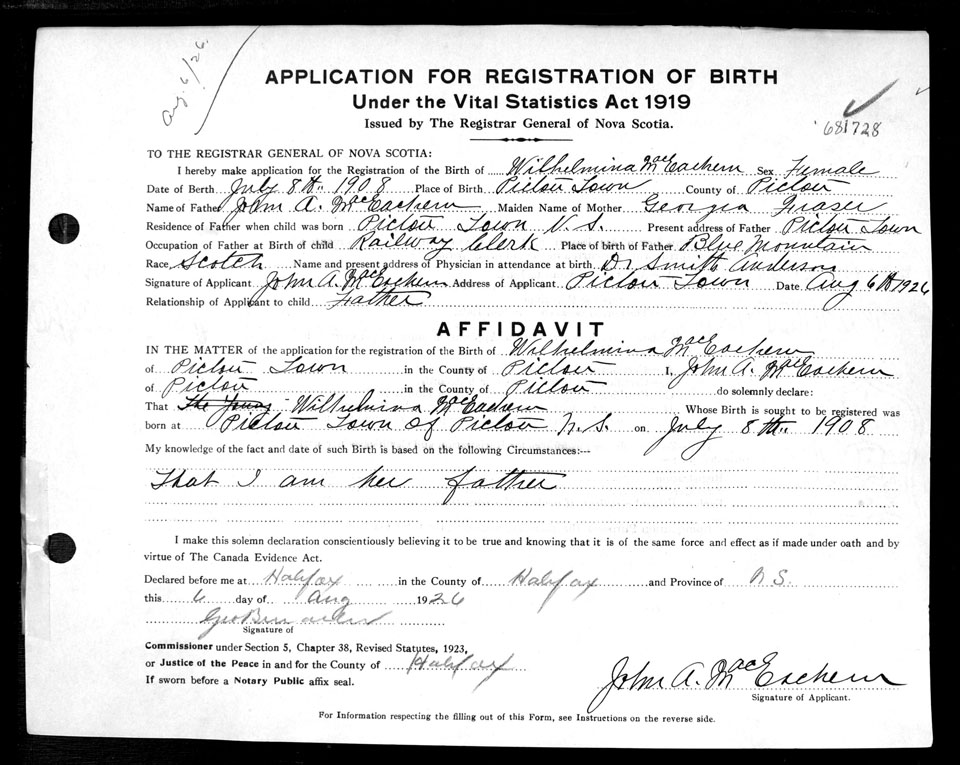 Aug. 6/26.
APPLICATION FOR REGISTRATION OF BIRTH
Under the Vital Statistics Act 1919
Issued by The Registrar General of Nova Scotia.
681728
TO THE REGISTRAR GENERAL OF NOVA SCOTIA:
I hereby make application for the Registration of the Birth of Wilhelmina MacEachern Sex Female
Date of Birth July 8th. 1908 Place of Birth Pictou Town County of Pictou
Name of Father John A. MacEachern Maiden Name of Mother Georgia Fraser
Residence of Father when child was born Pictou Town N. S. Present address of Father Pictou Town
Occupation of Father at Birth of child Railway Clerk Place of birth of Father Blue Mountain
Race Scotch Name and present address of Physician in attendance at birth Dr Smith Anderson
Signature of Applicant John A. MacEachern Address of Applicant Pictou Town Date Aug 6th 1926
Relationship of Applicant to child Father
AFFIDAVIT
IN THE MATTER of the application for the registration of the Birth of Wilhelmina MacEachern
of Pictou Town in the County of Pictou I, John A. MacEachern
of Pictou in the County of Pictou do solemnly declare:
That The Young Wilhelmina MacEachern Whose Birth is sought to be registered was
born at Pictou Town of Pictou N. S. on July 8th.. 1908
My knowledge of the fact and date of such Birth is based on the following Circumstances:--
That I am her father
I make this solemn declaration conscientiously believing it to be true and knowing that it is of the same force and effect as if made under oath and by
virtue of The Canada Evidence Act.
Declared before me at Halifax in the County of Halifax and Province of N. S.
this 6 day of Aug 1926
Signature of
Commissioner under Section 5, Chapter 38, Revised Statutes, 1923,
or Justice of the Peace in and for the County of Halifax
If sworn before a Notary Public affix seal.
John A. MacEachern
Signature of Applicant.
For Information respecting the filling out of this Form, see Instructions on the reverse side.